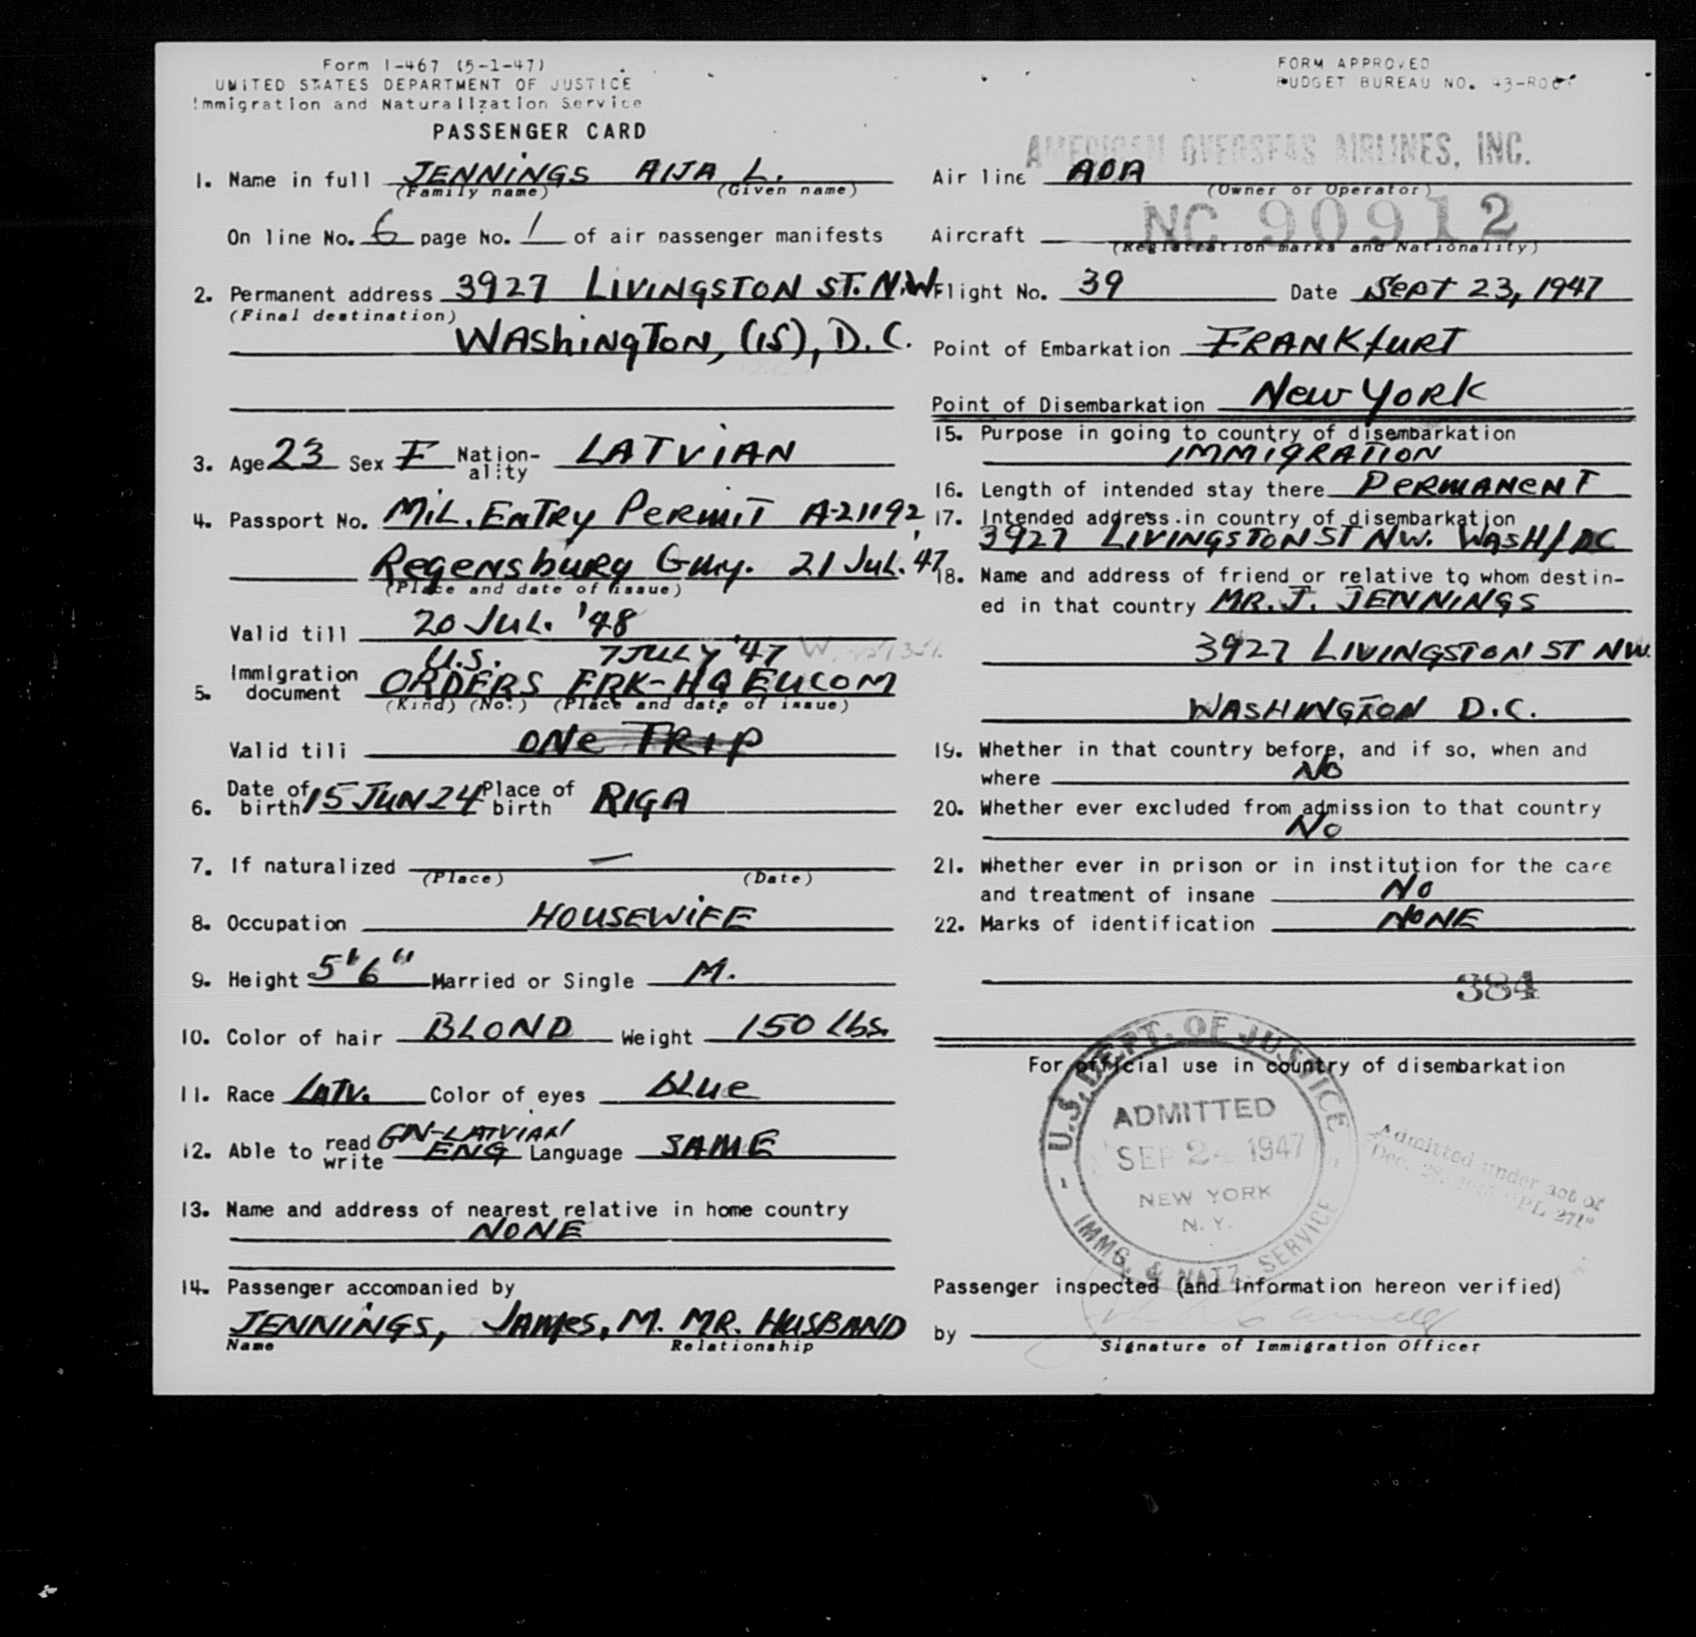 Form I-467 (5-1-47)
UNITED STATES DEPARTMENT OF JUSTICE
Immigration and Naturalization Service
PASSENGER CARD
FORM APPROVED
BUDGET BUREAU NO.
1. Name in full JENNINGS AIJA L.
(Family name) (Given name)
On line No. 6 page No. 1 of air passenger manifests
2. Permanent address 3927 LIVINGSTON ST. N.W
(Final destination)
WAShINgTON, (15), D.C.
3. Age 23 Sex F Nation-ality LATViAN
4. Passport No. MiL. ENTRy PERMiT A-21192
Regensburg Gmy. 21 JuL. '47
(Place and date of issue)
Valid till 20 JUL. '48
U.S. 7 JULY '47
5. Immigration document ORDERS FRK-HQ EUCOM
(Kind) (No.) (Place and date of issue)
Valid till ONE TRIP
6. Date of birth 15 JUN 24 Place of birth RIGA
7. If naturalized —
(Place) (Date)
8. Occupation HOUSEWiFE
9. Height 5'6" Married or Single M.
10. Color of hair BLOND Weight 150 Lbs.
11. Race LATV. Color of eyes BLUe
12. Able to read write GN-LATVIAN ENG Language SAME
13. Name and address of nearest relative in home country
NONE
14. Passenger accompanied by
JENNiNGS, JAMES, M. MR. HUSBAND
Name Relationship
AMERICAN OVERSEAS AIRLINES, INC.
Air line AOA
(Owner or Operator)
Aircraft NC 90912
(Registration marks and Nationality)
Flight No. 39 Date Sept 23, 1947
Point of Embarkation FRANKfURT
Point of Disembarkation New YORK
15. Purpose in going to country of disembarkation
IMMIGRATION
16. Length of intended stay there PERMANENT
17. Intended address in country of disembarkation
3927 LIVINGSTON ST NW. WASH/DC
18. Name and address of friend or relative to whom destin-
ed in that country MR. J. JENNINGS
3927 LIVINGSTON ST NW.
WASHINGTON D.C.
19. Whether in that country before, and if so, when and
where NO
20. Whether ever excluded from admission to that country
No
21. Whether ever in prison or in institution for the care
and treatment of insane NO
22. Marks of identification NONE
384
For official use in country of disembarkation
U.S. DEPT. OF JUSTICE
ADMITTED
SEP 24 1947
NEW YORK
N.Y.
IMMG. & NATZ. SERVICE
Admitted under act of
Dec. 28, PL 271"
Passenger inspected (and information hereon verified)
by
Signature of Immigration Officer